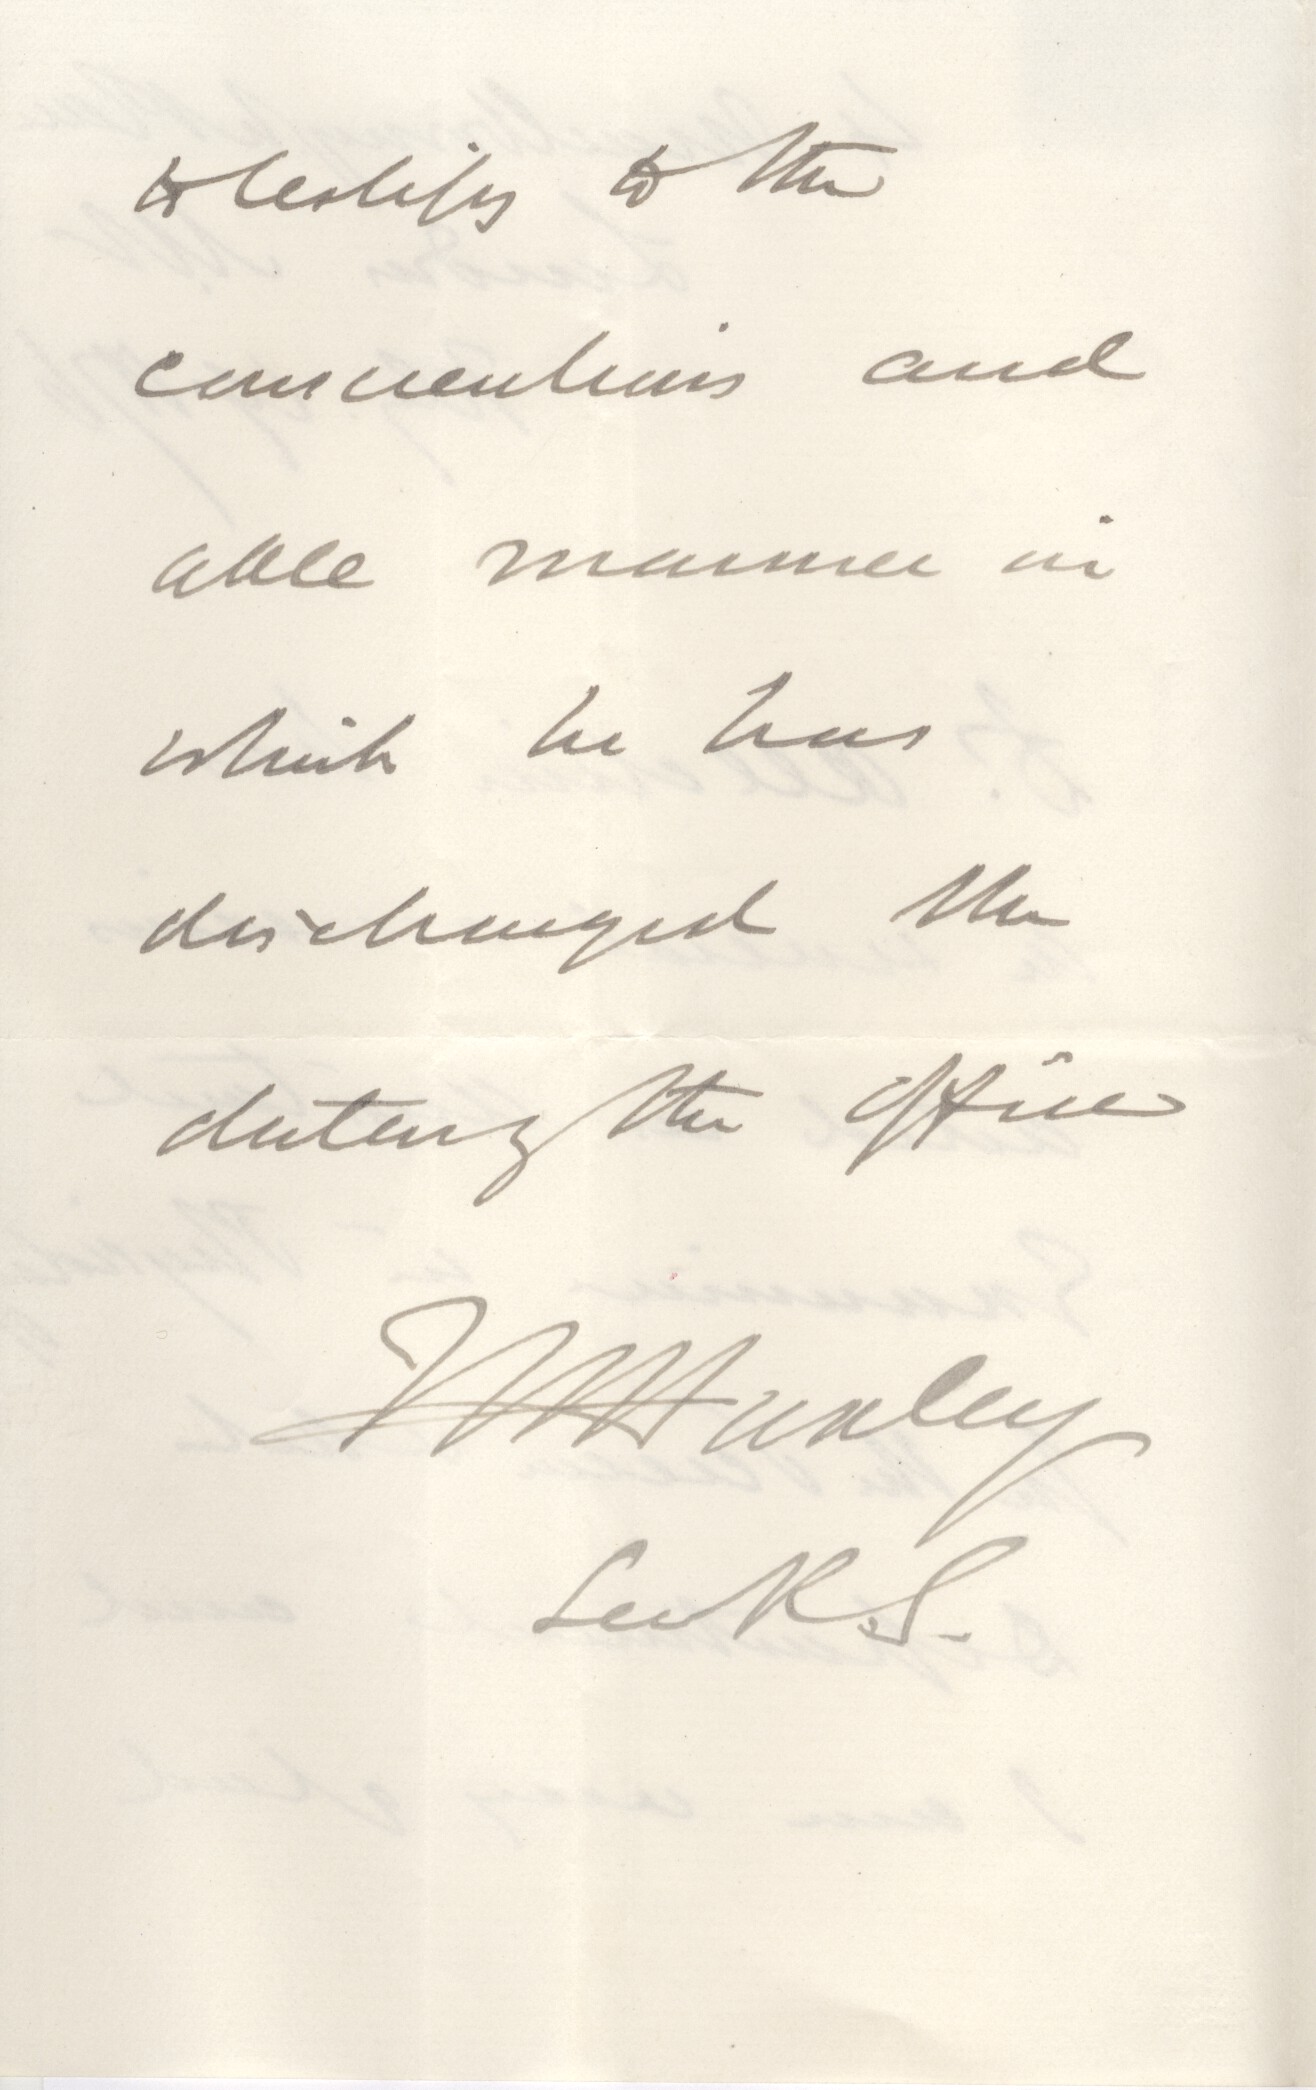 to testify to the
conscientious and
able manner in
which he has
discharged the
duties of the office
T H Huxley
Sec R.S.